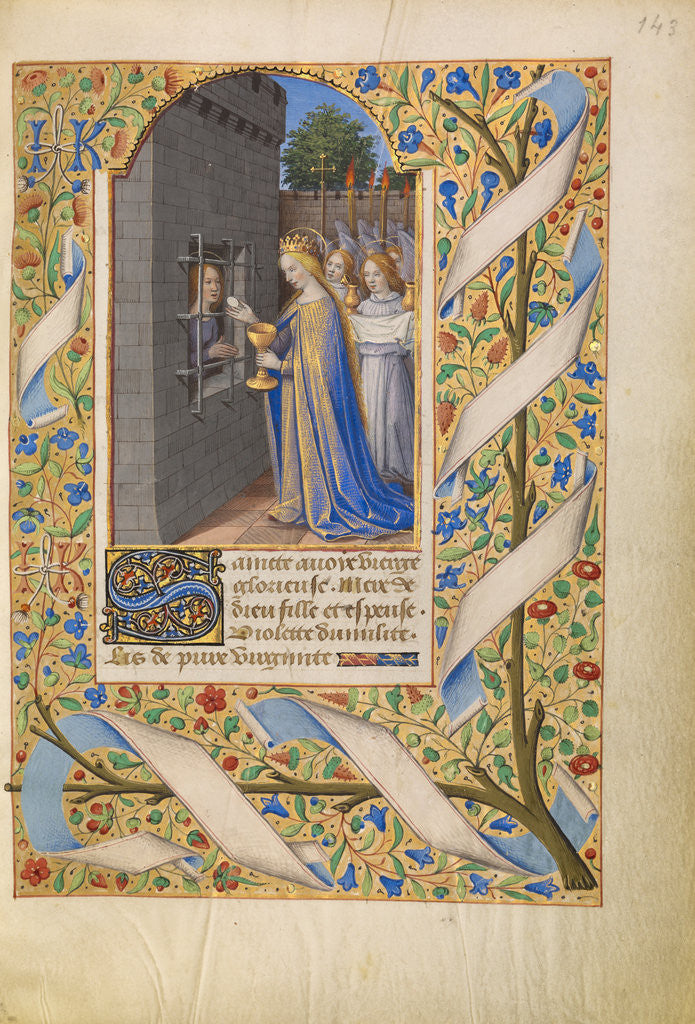 143
I K
Saincte avoye vierge
glorieuse. Meix de
dieu fille et espeuse.
Violette dumilite.
Lis de pure virginite
I K